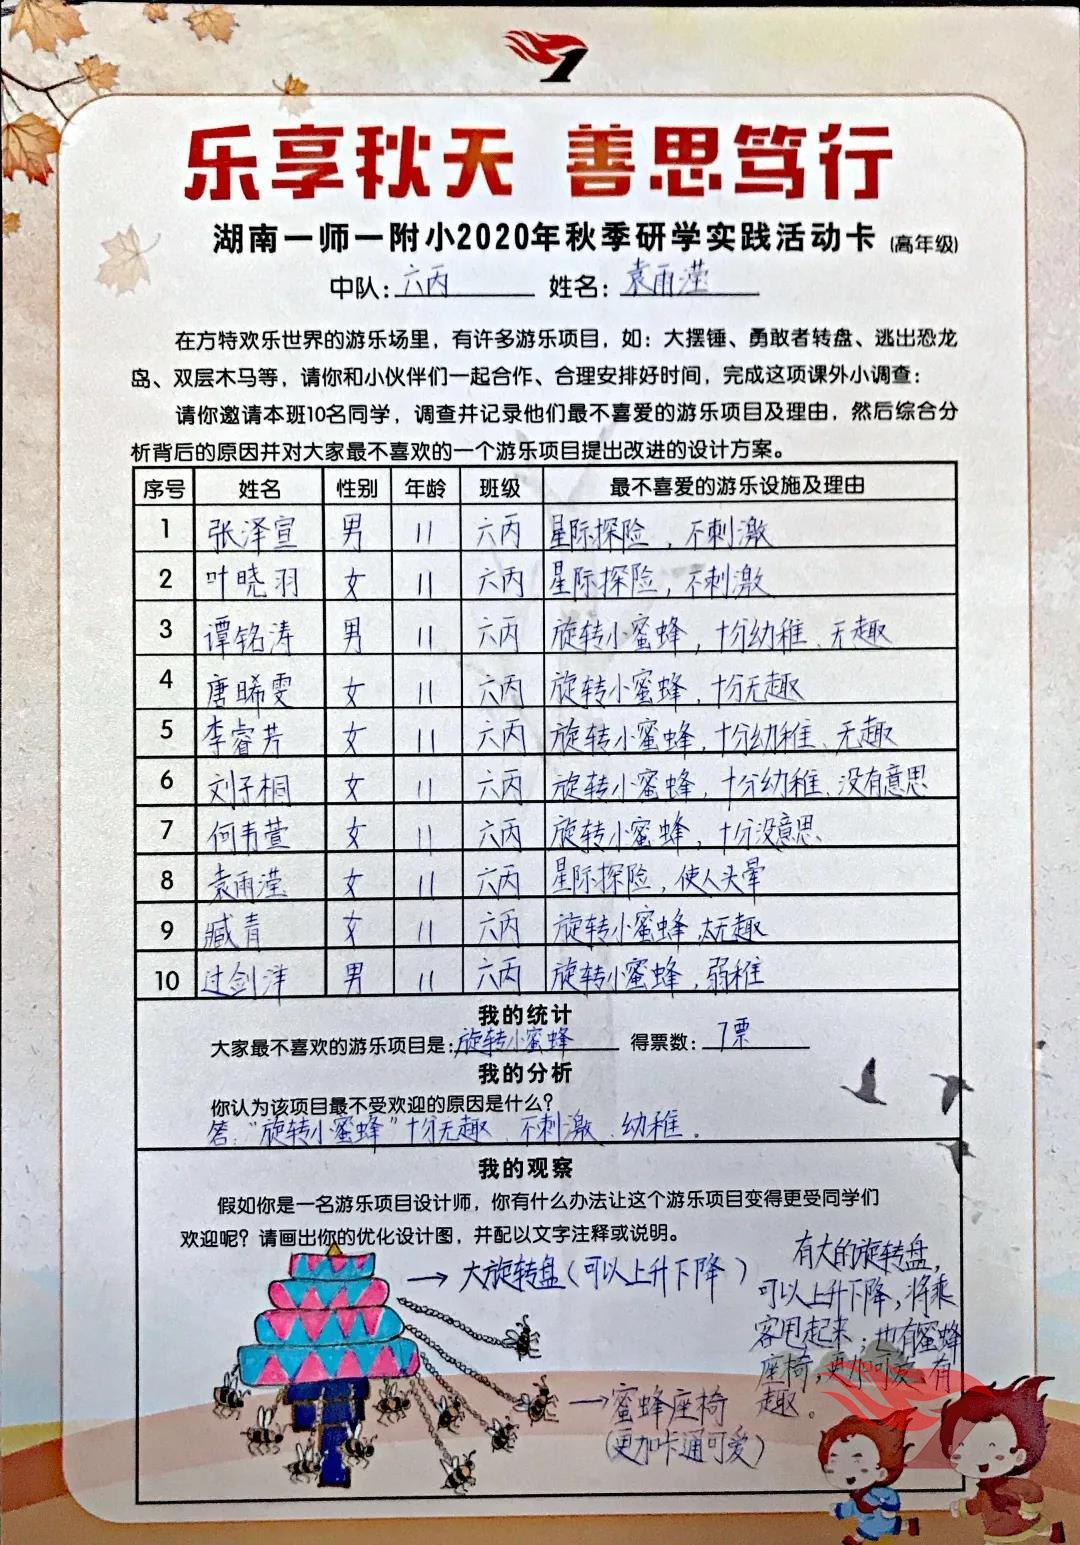 乐享秋天 善思笃行
湖南一师一附小2020年秋季研学实践活动卡(高年级)
中队:六丙 姓名:袁雨滢
在方特欢乐世界的游乐场里，有许多游乐项目，如：大摆锤、勇敢者转盘、逃出恐龙
岛、双层木马等，请你和小伙伴们一起合作、合理安排好时间，完成这项课外小调查：
请你邀请本班10名同学，调查并记录他们最不喜爱的游乐项目及理由，然后综合分
析背后的原因并对大家最不喜欢的一个游乐项目提出改进的设计方案。
序号 姓名 性别 年龄 班级 最不喜爱的游乐设施及理由
1 张泽宣 男 11 六丙 星际探险，不刺激
2 叶晓羽 女 11 六丙 星际探险，不刺激
3 谭铭涛 男 11 六丙 旋转小蜜蜂，十分幼稚、无趣
4 唐晞雯 女 11 六丙 旋转小蜜蜂，十分无趣
5 李睿芳 女 11 六丙 旋转小蜜蜂，十分幼稚、无趣
6 刘子桐 女 11 六丙 旋转小蜜蜂，十分幼稚、没有意思
7 何韦萱 女 11 六丙 旋转小蜜蜂，十分没意思
8 袁雨滢 女 11 六丙 星际探险，使人头晕
9 臧青 女 11 六丙 旋转小蜜蜂，太无趣
10 过剑洋 男 11 六丙 旋转小蜜蜂，弱稚
我的统计
大家最不喜欢的游乐项目是:旋转小蜜蜂 得票数:7票
我的分析
你认为该项目最不受欢迎的原因是什么?
答："旋转小蜜蜂"十分无趣、不刺激、幼稚。
我的观察
假如你是一名游乐项目设计师，你有什么办法让这个游乐项目变得更受同学们
欢迎呢？请画出你的优化设计图，并配以文字注释或说明。
大旋转盘(可以上升下降)
有大的旋转盘，
可以上升下降，将乘
客甩起来；也有蜜蜂
座椅，更加可爱有
趣。
蜜蜂座椅
(更加卡通可爱)